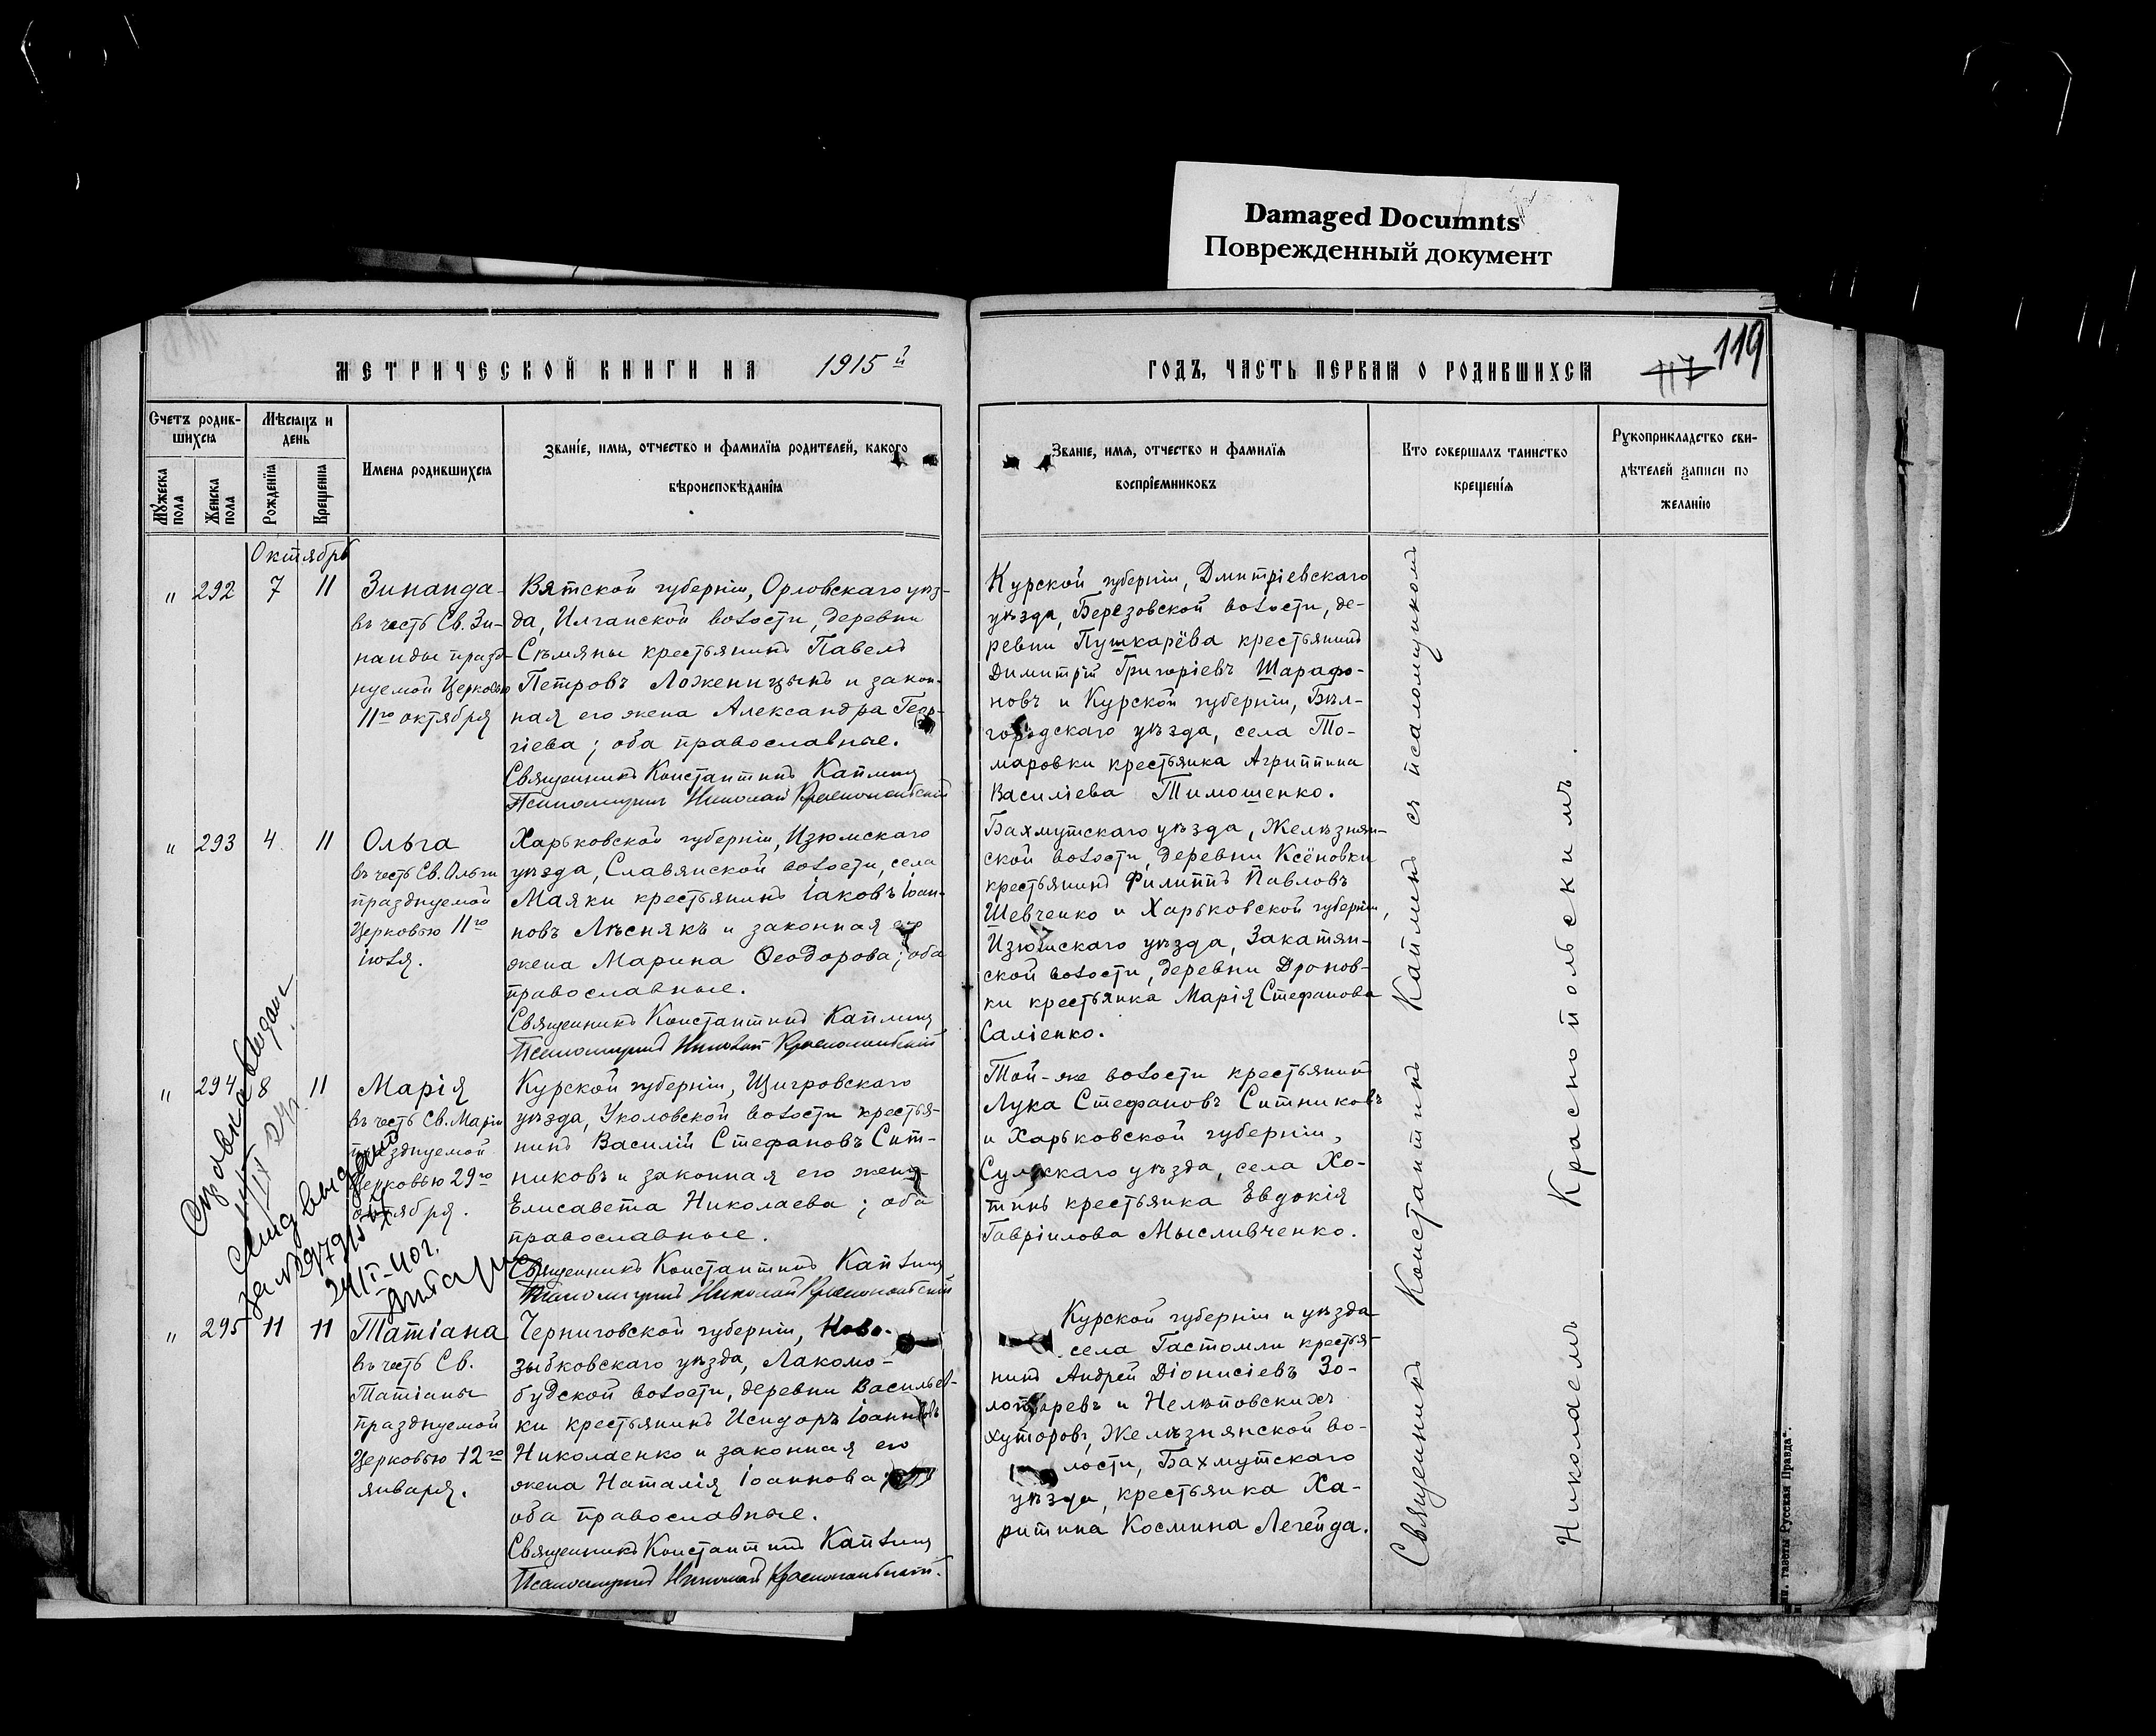 Damaged Documnts
Поврежденный документ
МЕТРИЧЕСКОЙ КНИГИ НА 1915й
ГОДЪ, ЧАСТЬ ПЕРВАЯ О РОДИВШИХСЯ
117 119
Счетъ родив-
шихся
Мужеска
пола
Женска
пола
Мѣсяцъ и
день
Рожденїя
Крещенїя
Имена родившихся
Званїе, имя, отчество и фамилїя родителей, какого
вѣроисповѣданїя
Званїе, имя, отчество и фамилїя
воспрїемниковъ
Кто совершалъ таинство
крещенїя
Рукоприкладство сви-
дѣтелей записи по
желанїю
Октябрь
" 292 7 11
Зинаида
въ честь Св. Зи-
наиды празд-
нуемой Церковью
11го октября
Вятской губерніи, Орловскаго уѣз-
да, Илганской волости, деревни
Сѣмяны крестьянинъ Павелъ
Петровъ Ложеницынъ и закон-
ная его жена Александра Геор-
гіева; оба православные.
Священникъ Константинъ Каплинъ
Псаломщикъ Николай Краснопольскій
Курской губерніи, Дмитріевскаго
уѣзда, Березовской волости, де-
ревни Пушкарёва крестьянинъ
Димитрій Григоріевъ Шарафо-
новъ и Курской губерніи, Бѣл-
городскаго уѣзда, села То-
маровки крестьянка Агриппина
Василіева Тимошенко.
" 293 4 11
Ольга
въ честь Св. Ольги
празднуемой
Церковью 11го
іюля.
Харьковской губерніи, Изюмскаго
уѣзда, Славянской волости, села
Маяки крестьянинъ Іаковъ Іоан-
новъ Лѣснякъ и законная его
жена Марина Ѳеодорова; оба
православные.
Священникъ Константинъ Каплинъ
Псаломщикъ Николай Краснопольскій
Бахмутскаго уѣзда, Желѣзнян-
ской волости, деревни Ксёновки
крестьянинъ Филиппъ Павловъ
Шевченко и Харьковской губерніи,
Изюмскаго уѣзда, Закатян-
ской волости, деревни Дронов-
ки крестьянка Марія Стефанова
Саліенко.
" 294 8 11
Марія
въ честь Св. Маріи
празднуемой
Церковью 29го
октября.
Курской губерніи, Щигровскаго
уѣзда, Уколовской волости крестья-
нинъ Василій Стефановъ Сит-
никовъ и законная его жена
Елисавета Николаева; оба
православные.
Священникъ Константинъ Каплинъ
Псаломщикъ Николай Краснопольскій
Той-же волости крестьянинъ
Лука Стефановъ Ситниковъ
и Харьковской губерніи,
Сумскаго уѣзда, села Хо-
тинь крестьянка Евдокія
Гавріилова Мысливченко.
Справка выдана
выдано
за №
24/I-40 г.
" 295 11 11
Татіана
въ честь Св.
Татіаны
празднуемой
Церковью 12го
января.
Черниговской губерніи, Ново-
зыбковскаго уѣзда, Лакомо-
будской волости, деревни Васильев-
ки крестьянинъ Исидоръ Іоанновъ
Николаенко и законная его
жена Наталія Іоаннова;
оба православные.
Священникъ Константинъ Каплинъ
Псаломщикъ Николай Краснопольскій.
Курской губерніи и уѣзда
села Гастомли крестья-
нинъ Андрей Діонисіевъ Зо-
лотаревъ и Нелѣповскихъ
хуторовъ, Желѣзнянской во-
лости, Бахмутскаго
уѣзда, крестьянка Ха-
ритина Космина Легейда.
Священникъ Константинъ Каплинъ съ псаломщикомъ
Николаемъ Краснопольскимъ.
Тип. газеты Русская Правда".